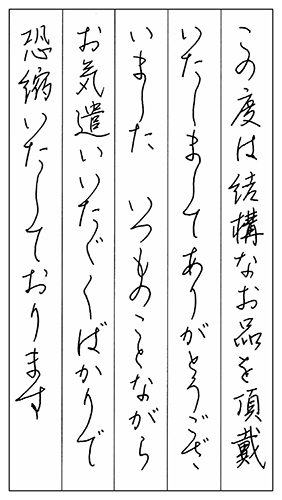 この度は結構なお品を頂戴
いたしましてありがとうござ
いました いつものことながら
お気遣いいただくばかりで
恐縮いたしております